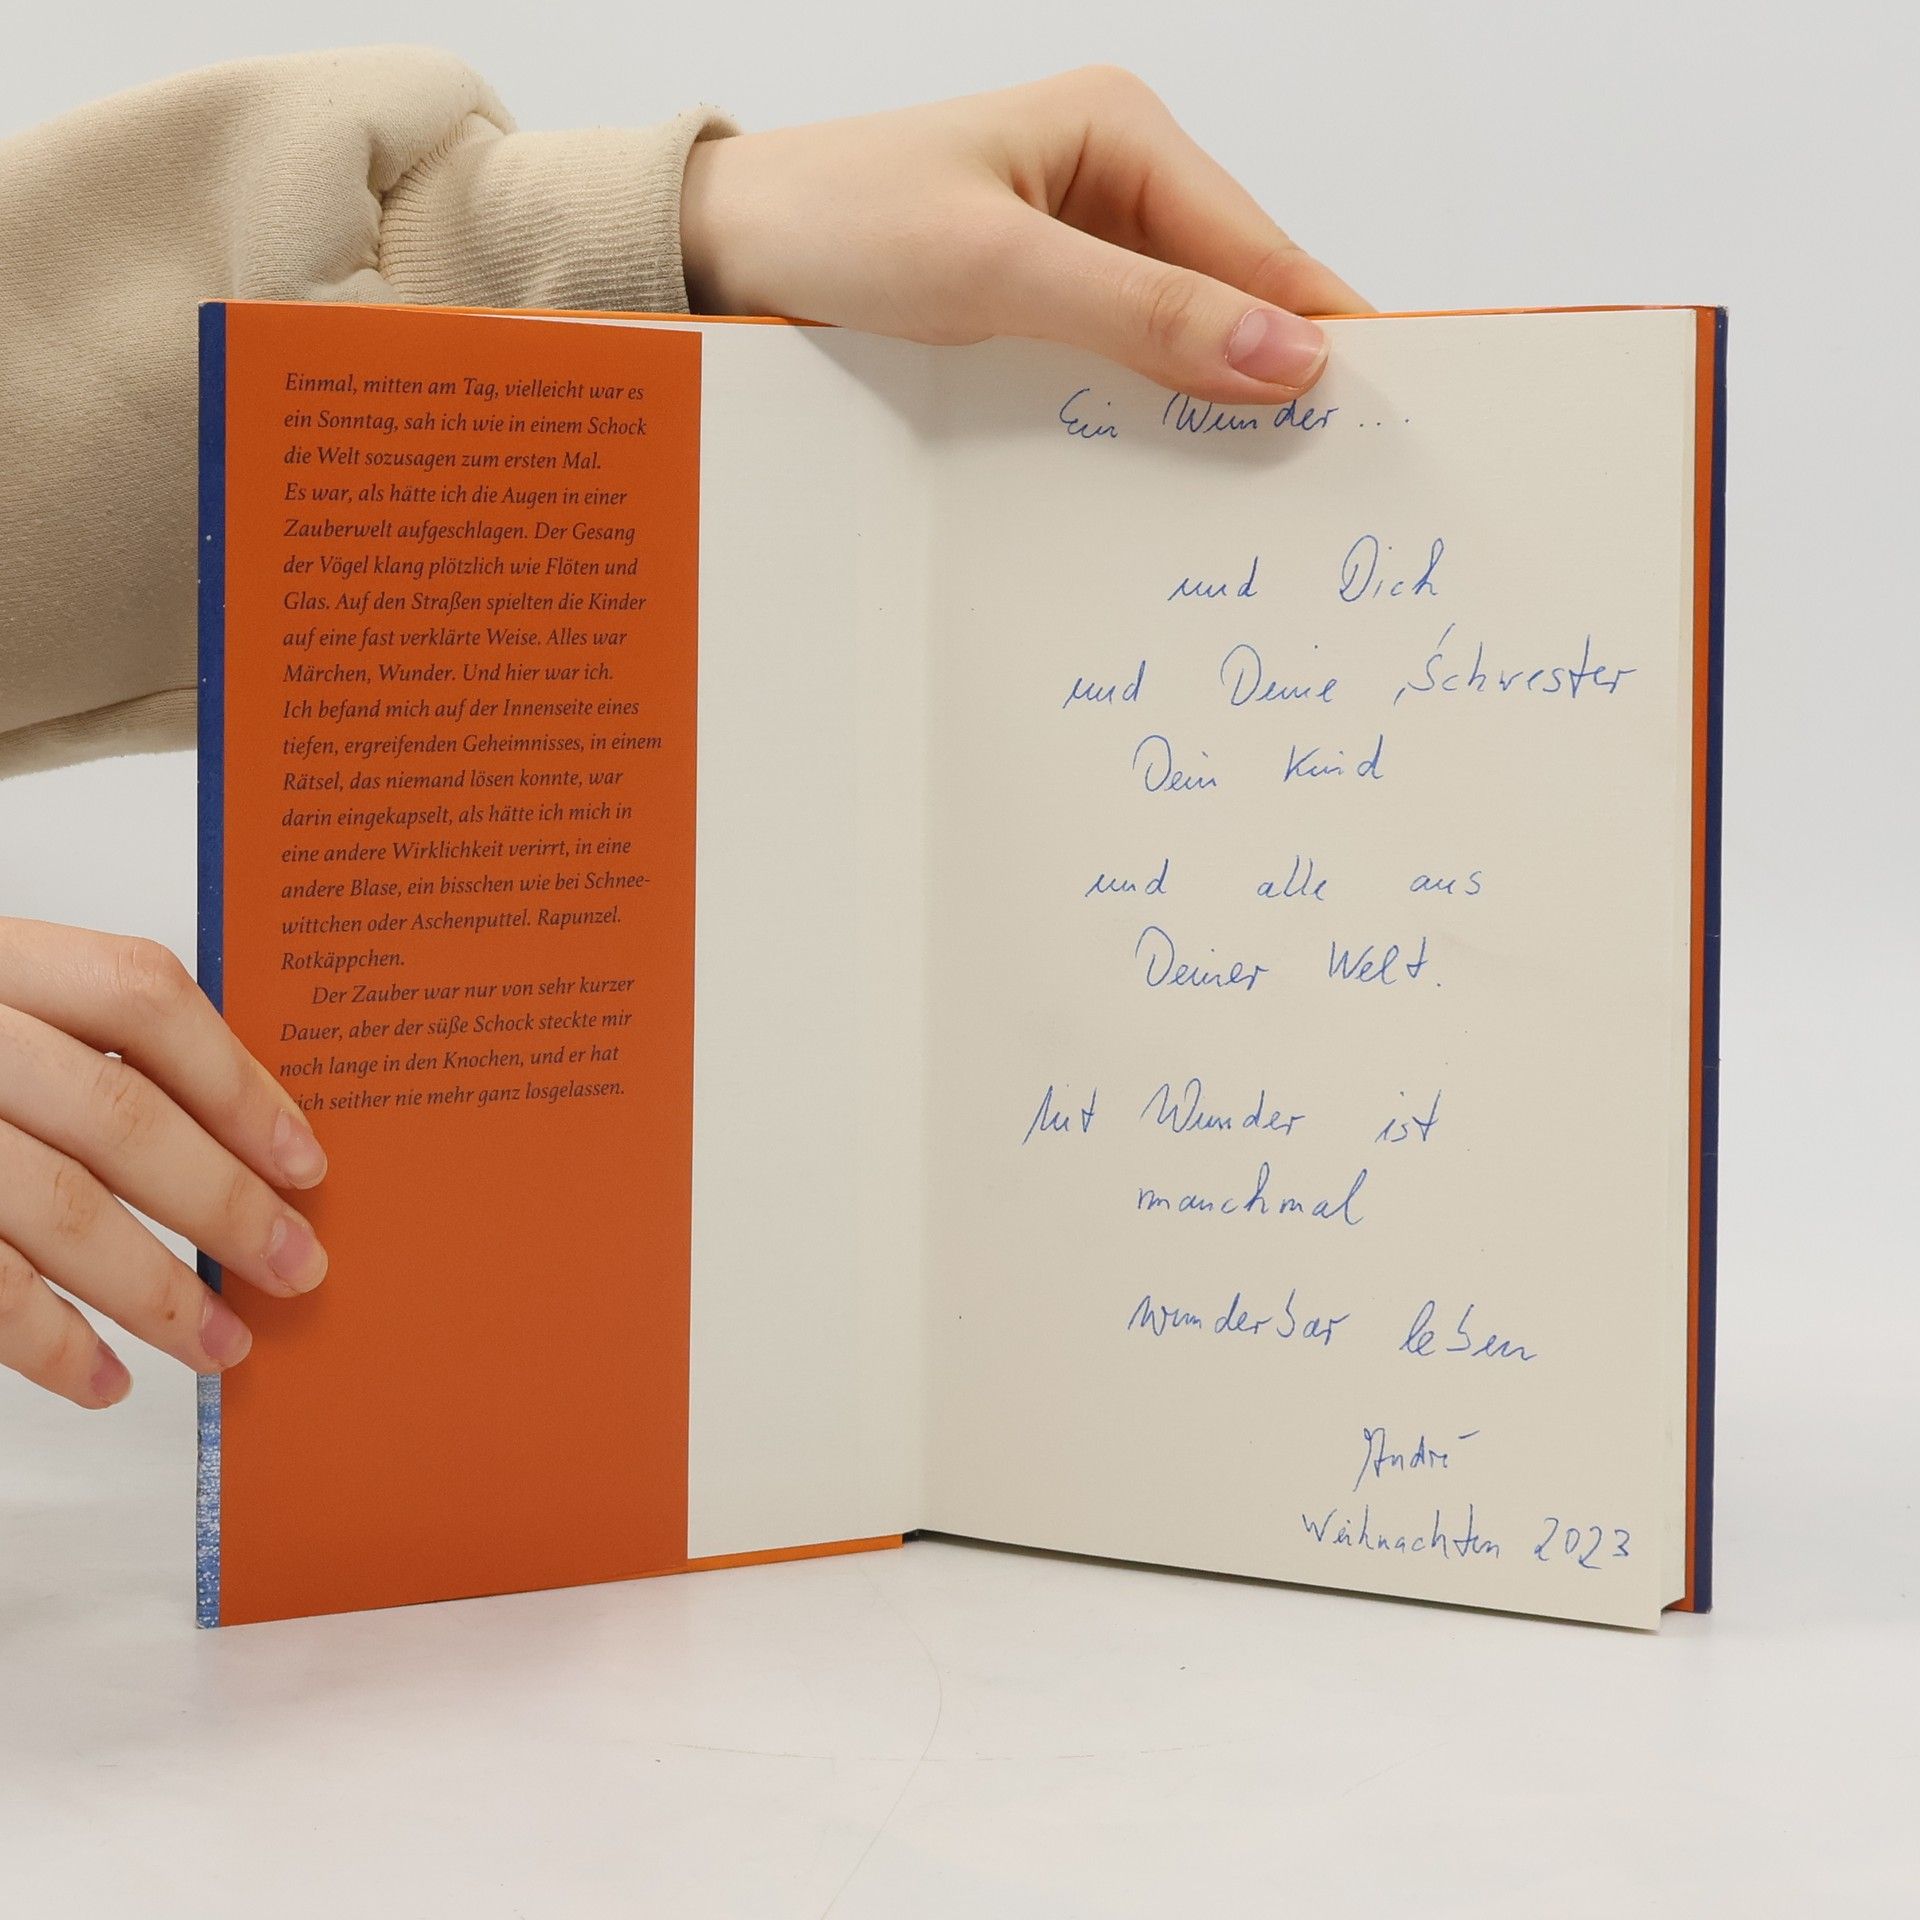 Einmal, mitten am Tag, vielleicht war es
ein Sonntag, sah ich wie in einem Schock
die Welt sozusagen zum ersten Mal.
Es war, als hätte ich die Augen in einer
Zauberwelt aufgeschlagen. Der Gesang
der Vögel klang plötzlich wie Flöten und
Glas. Auf den Straßen spielten die Kinder
auf eine fast verklärte Weise. Alles war
Märchen, Wunder. Und hier war ich.
Ich befand mich auf der Innenseite eines
tiefen, ergreifenden Geheimnisses, in einem
Rätsel, das niemand lösen konnte, war
darin eingekapselt, als hätte ich mich in
eine andere Wirklichkeit verirrt, in eine
andere Blase, ein bisschen wie bei Schnee-
wittchen oder Aschenputtel. Rapunzel.
Rotkäppchen.
Der Zauber war nur von sehr kurzer
Dauer, aber der süße Schock steckte mir
noch lange in den Knochen, und er hat
ich seither nie mehr ganz losgelassen.
Ein Wunder...
und Dich
und Deine Schwester
Dein Kind
und alle aus
Deiner Welt.
Mit Wunder ist
manchmal
wunderbar leben
André
Weihnachten 2023